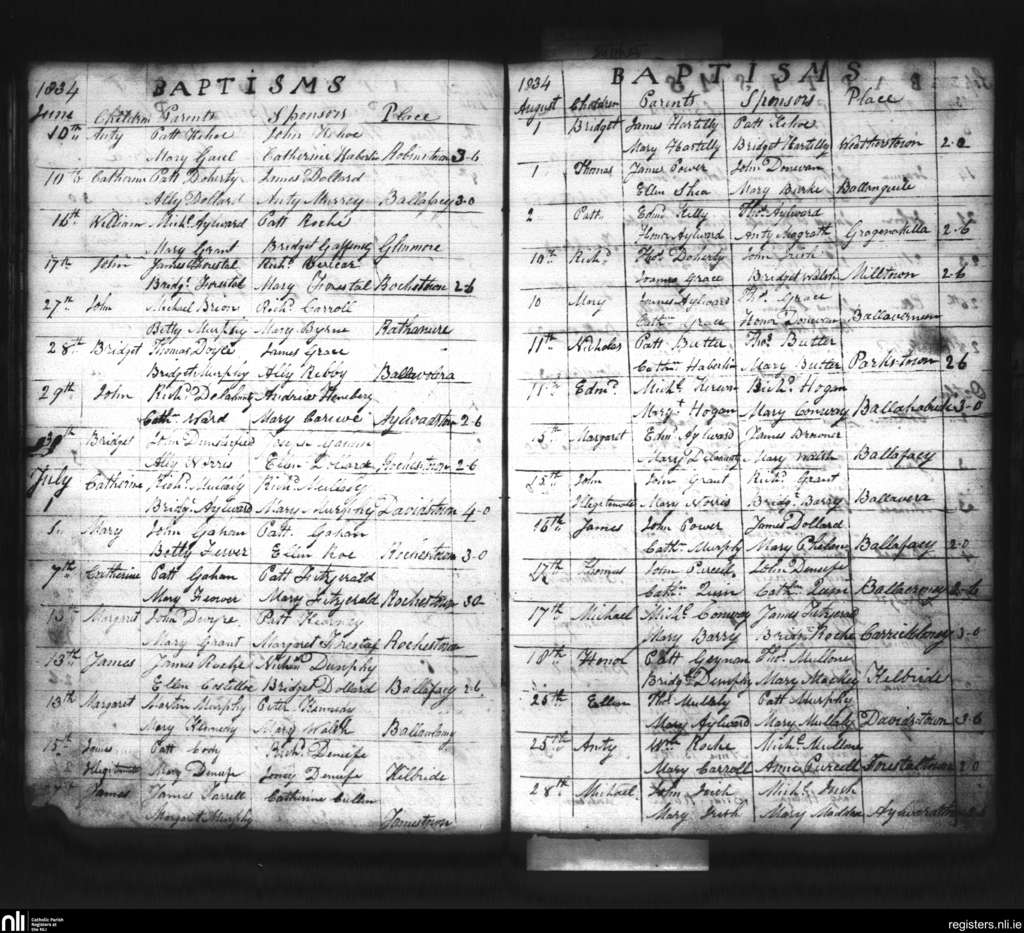 1834 BAPTISMS
June Children Parents Sponsors Place
10th Anty Patt Kehoe John Kehoe
Mary Gaul Catherine Haberlin Robinstown 3-6
10th Catherine Patt Doherty James Dollard
Ally Dollard Anty Murrey Ballafacy 3-0
16th William Michl. Aylward Patt Roche
Mary Grant Bridget Gaffeney Glinmore
17th John James Forestal Richd.
Bridgt. Forestal Mary Forestal Rochestown 2-6
27th John Micheal Brion Richd. Carroll
Betty Murphy Mary Byrne Rathanure
28th Bridget Thomas Doyle James Grace
Bridget Murphy Ally Kehoy Ballavoira
29th John Richd. Delahunty Andrew
Cathn. Ward Mary Carewe Aylwardstown 2-6
30th Bridget John Densefied
Ally Norris Ellen Dollard Rochestown 2-6
July Catherine Richd. Mullaly Richd. Mullaly
1 Bridgt. Aylward Mary Murphy Davidstown 4-0
1 Mary John Gahan Patt. Gahan
Betty Ellin Roe Rochestown 3-0
7th Catherine Patt Gahan Patt Fitzgerald
Mary Mary Fitzgerald Rochestown 30
13 Margaret John Patt
Mary Grant Margaret Forestal Rochestown
13th James James Roche Nichs. Dunphy
Ellen Costelloe Bridget Dollard Ballafacy 2-6
13th Margaret Martin Murphy Peter Kennedy
Mary Kennedy Mary Walsh
15th James Patt Cody Richd. Denieffe
Illegitimate Mary Denieffe Joney Denieffe Kilbride
27th James James Farrell Catherine Cullen
Margaret Murphy Jamestown
1834 BAPTISMS
August Children Parents Sponsors Place
1 Bridget James Hartelly Patt Kehoe
Mary Hartelly Bridget Hartelly Weatherstown 2-0
1 Thomas James Power John Donevan
Ellen Shea Mary Burke Ballinguile
2 Patt Edmd. Kelly Thos. Aylward
Honor Aylward Anty Magrath Gragenakilla 2-6
10th Richd. Thos. Doherty John Irish
Joanna Grace Bridget Walsh Milltown 2-6
10 Mary James Aylward Thos. Grace
Cathn. Grace Honor Donevan Ballaverneen
11th Nicholas Patt Butler Thos. Butler
Cathn. Haberlin Mary Butler Parkstown 26
11th Edmd. Michl. Kerwn Richd. Hogan
Margt. Hogan Mary Comway Ballahabuck 3-0
13th Margaret Edmd. Aylward James
Mary Delahunty Mary Walsh Ballafacy
15th John John Grant Richd. Grant
Illegitimate Mary Norris Bridgt. Barry Ballavera
16th James John Power James Dollard
Cathn. Murphy Mary Phelan Ballafacy 2-0
17th Thomas John Purcell John Deneife
Cathn. Quin Cathn. Quin Ballacroney 2-6
17th Michael Michl. Comway James Fitzgerald
Mary Barry Bridgt. Roche Carrickloney 3-0
18th Honor Patt Geynan Thos. Mullone
Bridgt. Dunphy Mary Mackey Kilbride
25th Ellian Thos. Mullaly Patt Murphy
Mary Aylward Mary Mullaly Davidstown 3-6
25th Anty Wm. Roche Michl. Mullone
Mary Carroll Anna Purcell Forestalstown 2-0
28th Michael John Irish Michl. Irish
Mary Irish Mary Madden Aylwardstown
nli Catholic Parish Registers at the NLI
registers.nli.ie